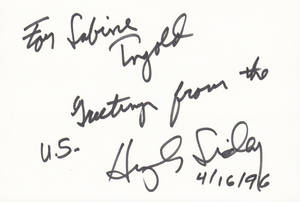 For Sabine
Ingold
Greetings from the
U.S.
Hugh Sidey
4/16/96